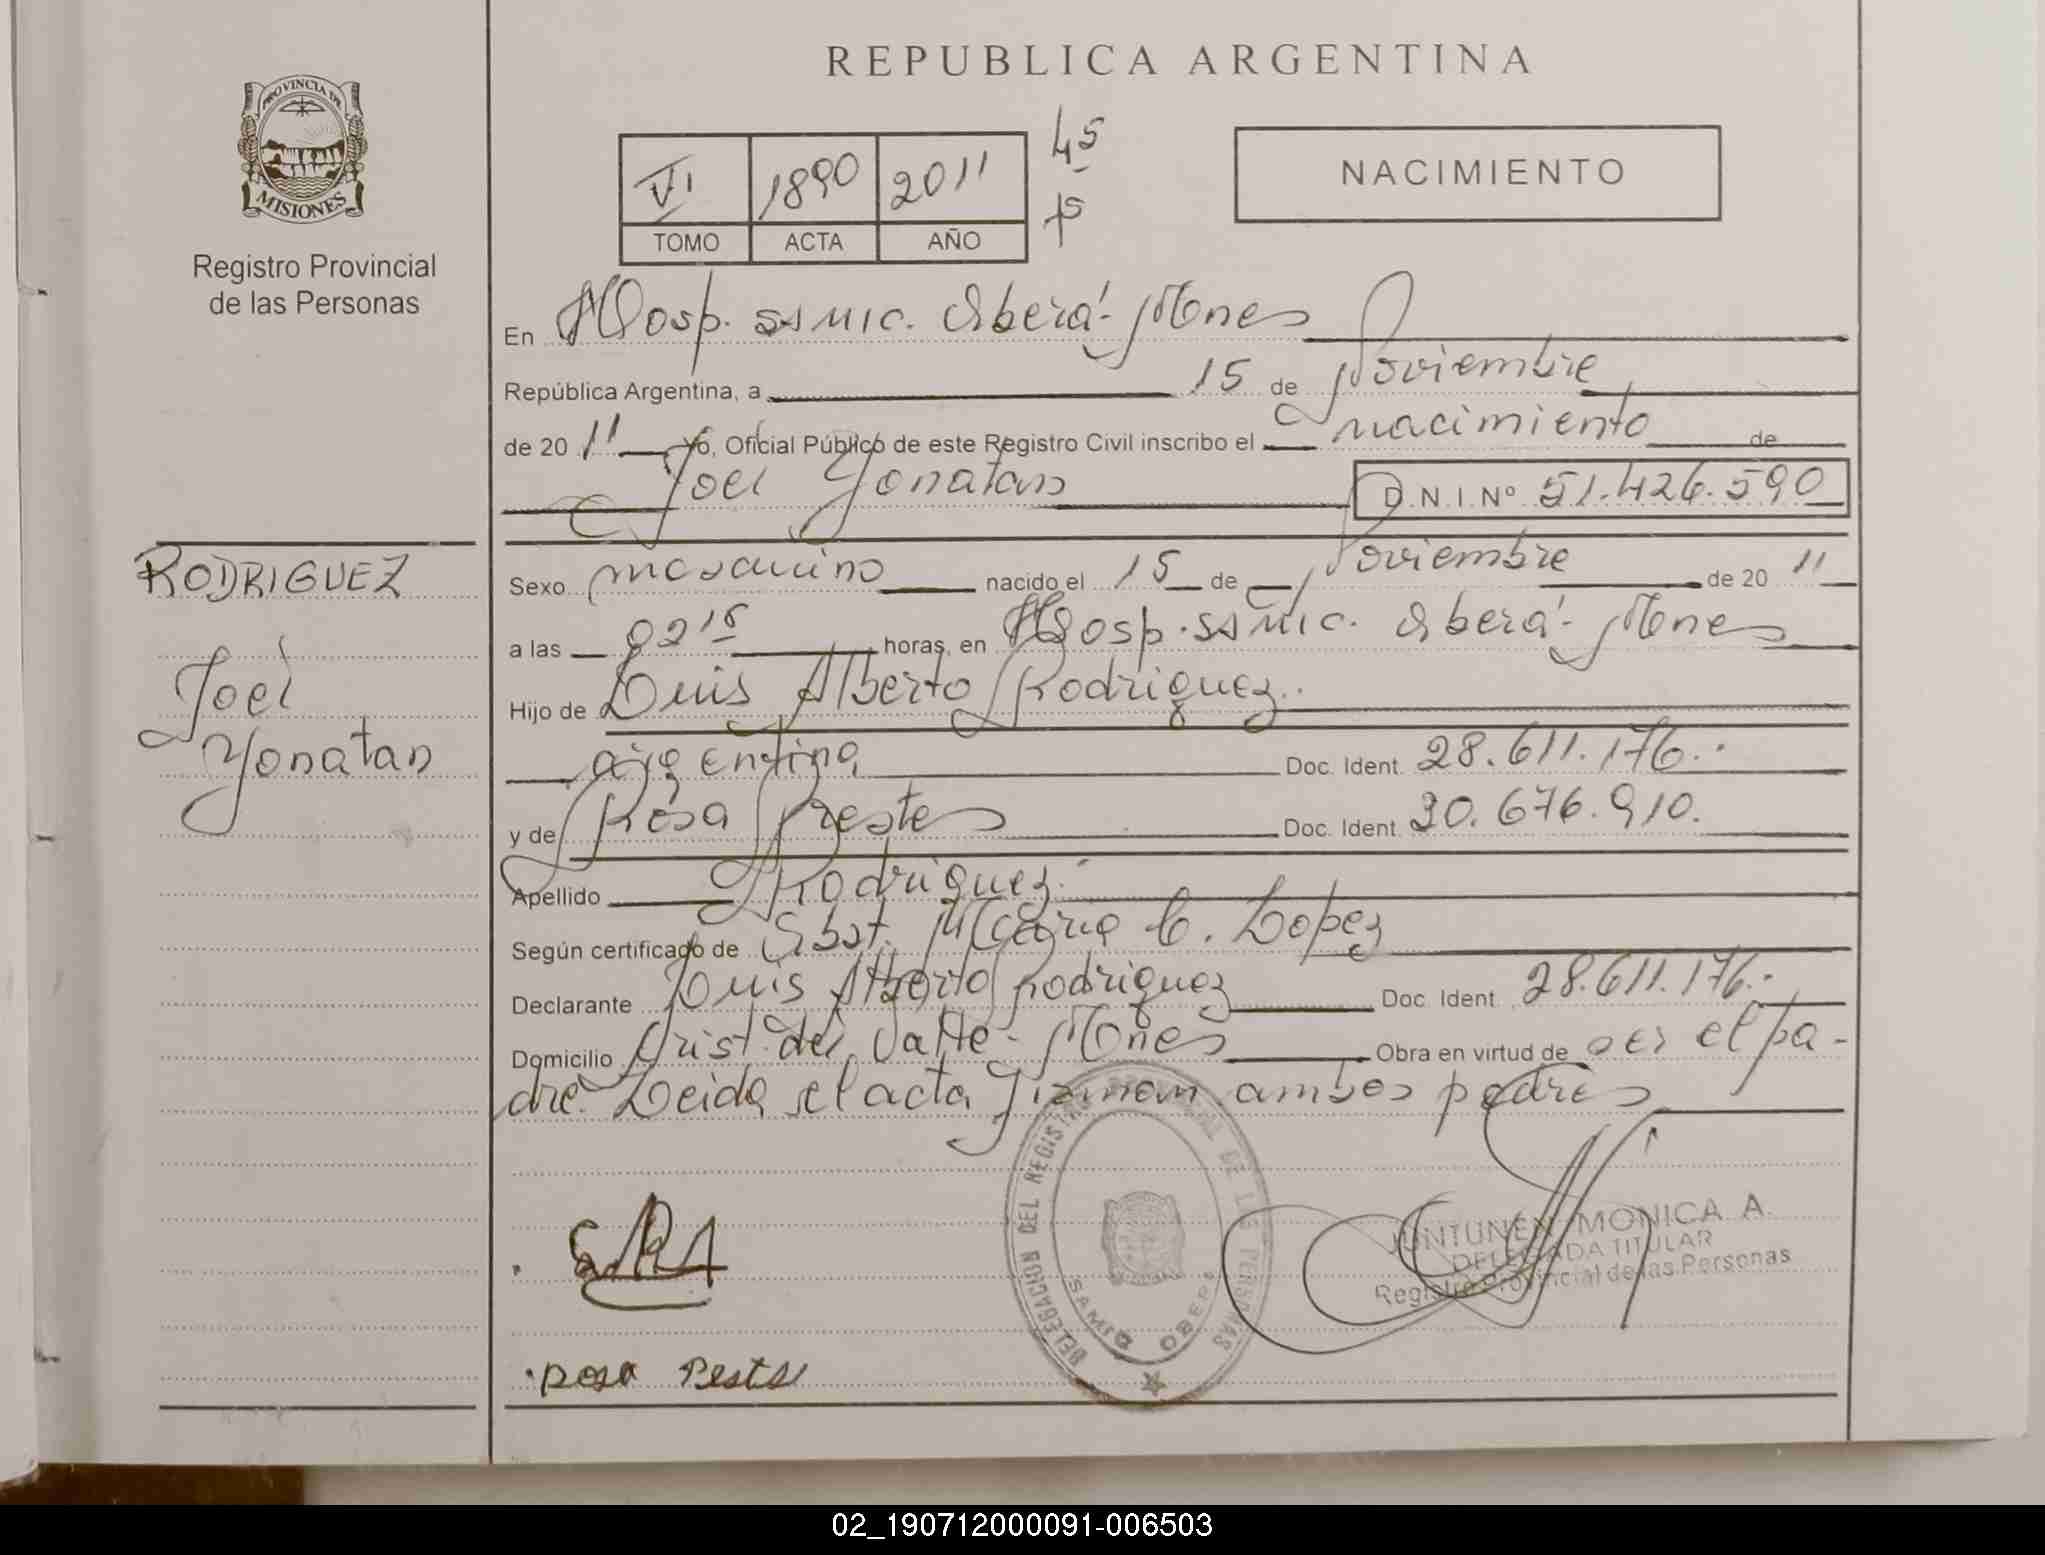 REPUBLICA ARGENTINA
PROVINCIA DE
MISIONES
Registro Provincial
de las Personas
VI 1890 2011
TOMO ACTA AÑO
45
NACIMIENTO
En Hosp. SSMIC. Oberá - Mnes
República Argentina, a 15 de Noviembre
de 20 11 Yo, Oficial Público de este Registro Civil inscribo el nacimiento de
Joel Yonatan D.N.I.Nº 51.426.590
RODRIGUEZ
Joel
Yonatan
Sexo masculino nacido el 15 de Noviembre de 20 11
a las horas, en Hosp. SSMIC. Oberá - Mnes
Hijo de Luis Alberto Rodriguez
argentina Doc. Ident. 28.611.176.
y de Rosa Prestes Doc. Ident. 30.676.910.
Apellido Rodriguez
Según certificado de Obst. C. Lopez
Declarante Luis Alberto Rodriguez Doc. Ident. 28.611.176.
Domicilio Arist. del Valle - Mnes Obra en virtud de ser el pa-
dre. Leida el acta firman ambos padres
DELEGACION DEL REGISTRO PROVINCIAL DE LAS PERSONAS
OBERA
JUNTUNEN MONICA A.
DELEGADA TITULAR
Registro Provincial de las Personas
Rosa
02_190712000091-006503